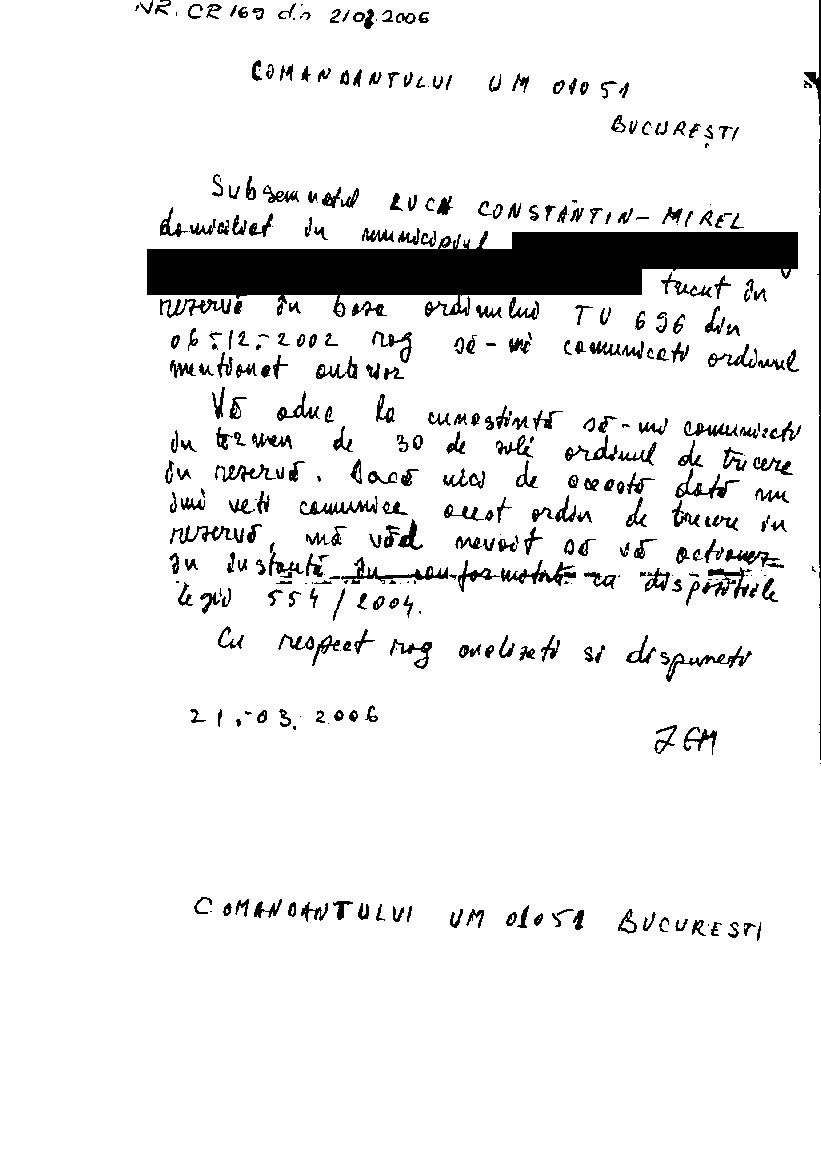 NR. CR 169 din 21.03.2006
COMANDANTULUI UM 01051
BUCUREȘTI
Subsemnatul LUCA CONSTANTIN-MIREL
domiciliat în municipiul
trecut în
rezervă în baza ordinului TU 696 din
06.12.2002 rog să-mi comunicati ordinul
mentionat anterior
Vă aduc la cunostintă să-mi comunicati
în termen de 30 de zile ordinul de trecere
în rezervă. Dacă nici de această dată nu
îmi veti comunica acest ordin de trecere în
rezervă, mă văd nevoit să vă actionez
în instantă în conformitate cu dispozitiile
legii 554/2004.
Cu respect rog analizati si dispuneti
21.-03.2006
COMANDANTULUI UM 01051 BUCURESTI